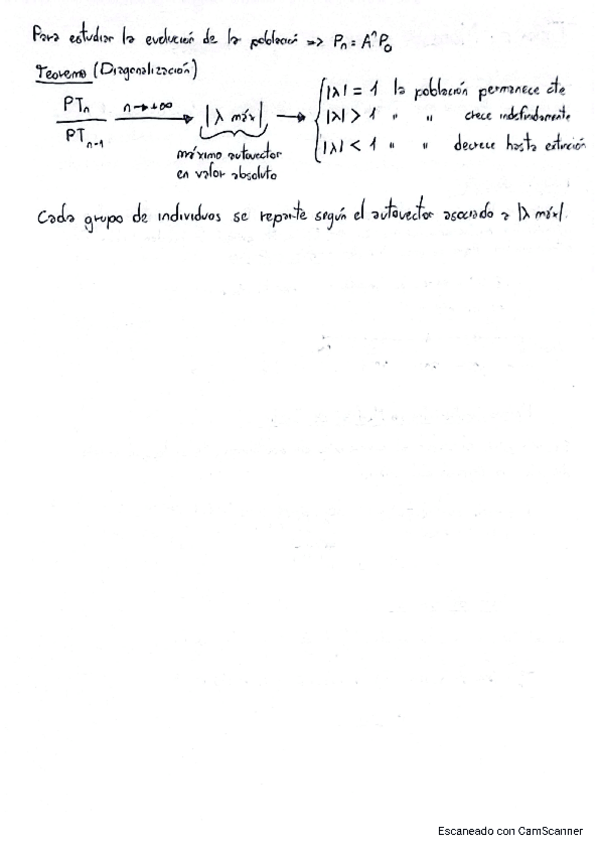 Para estudiar la evolución de la població => Pn = A^n P0
Teorema (Diagonalización)
PTn / PTn-1 n→+∞ → |λ máx| → { |λ| = 1 la población permanece cte
|λ| > 1 " " crece indefinidamente
|λ| < 1 " " decrece hasta extinción
máximo autovector
en valor absoluto
Cada grupo de individuos se reparte según el autovector asociado a |λ máx|.
Escaneado con CamScanner